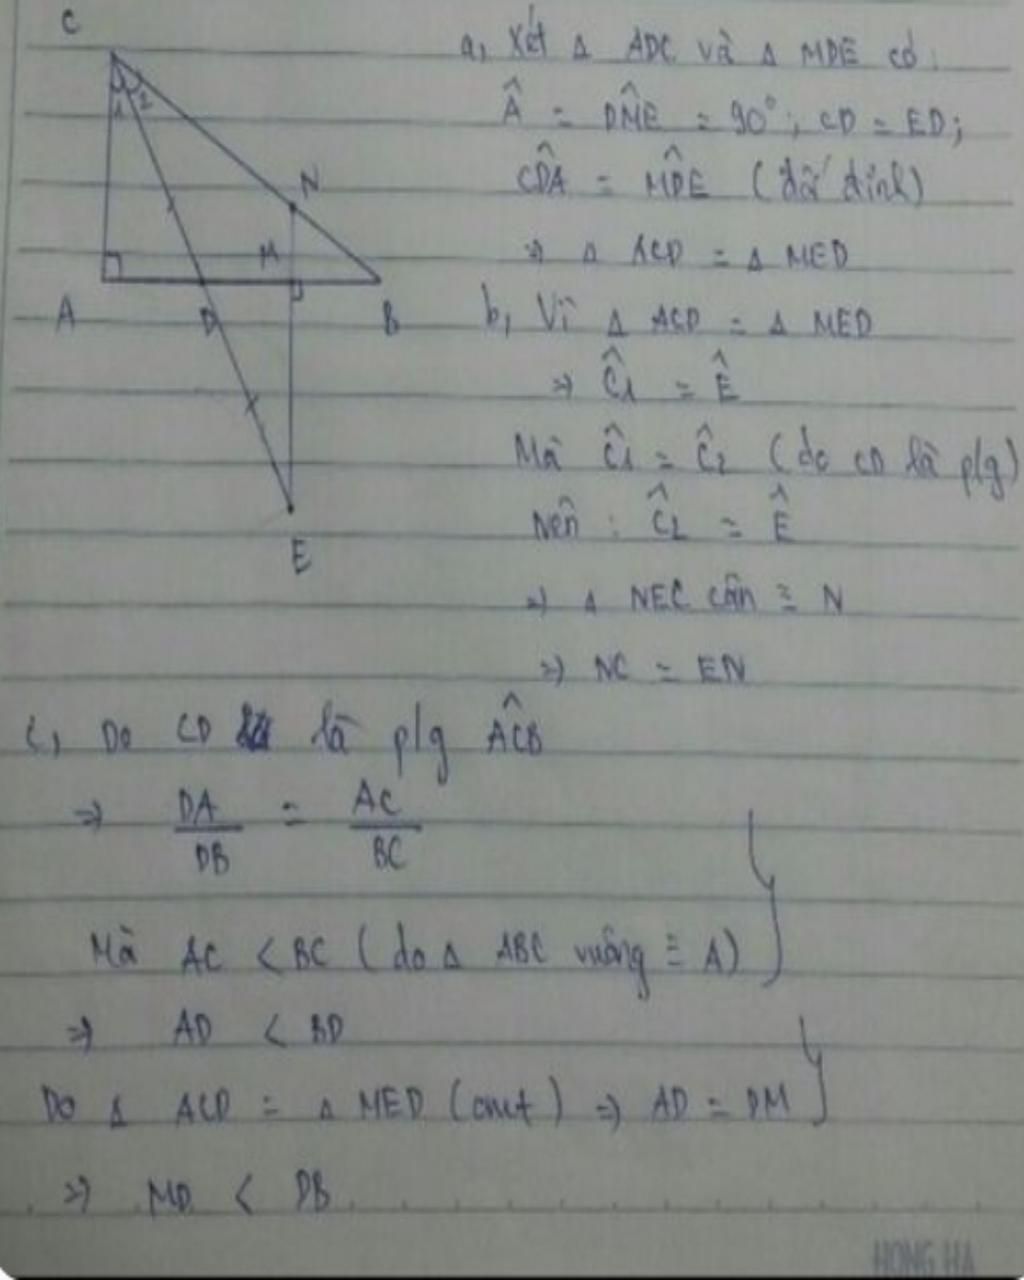 C
1 2
N
M
A
D
B
E
a, Xét Δ ADC và Δ MDE có:
Â = DM̂E = 90°; CD = ED;
CD̂A = MD̂E (đối đỉnh)
=> Δ ACD = Δ MED
b, Vì Δ ACD = Δ MED
=> Ĉ1 = Ê
Mà Ĉ1 = Ĉ2 (do CD là p/g)
Nên : Ĉ2 = Ê
=> Δ NEC cân = N
=> NC = EN
c, Do CD là p/g AĈB
=> DA/DB = AC/BC
Mà AC < BC (do Δ ABC vuông = A)
=> AD < BD
Do Δ ACD = Δ MED (cmt) => AD = DM
=> MD < DB
HONG HA